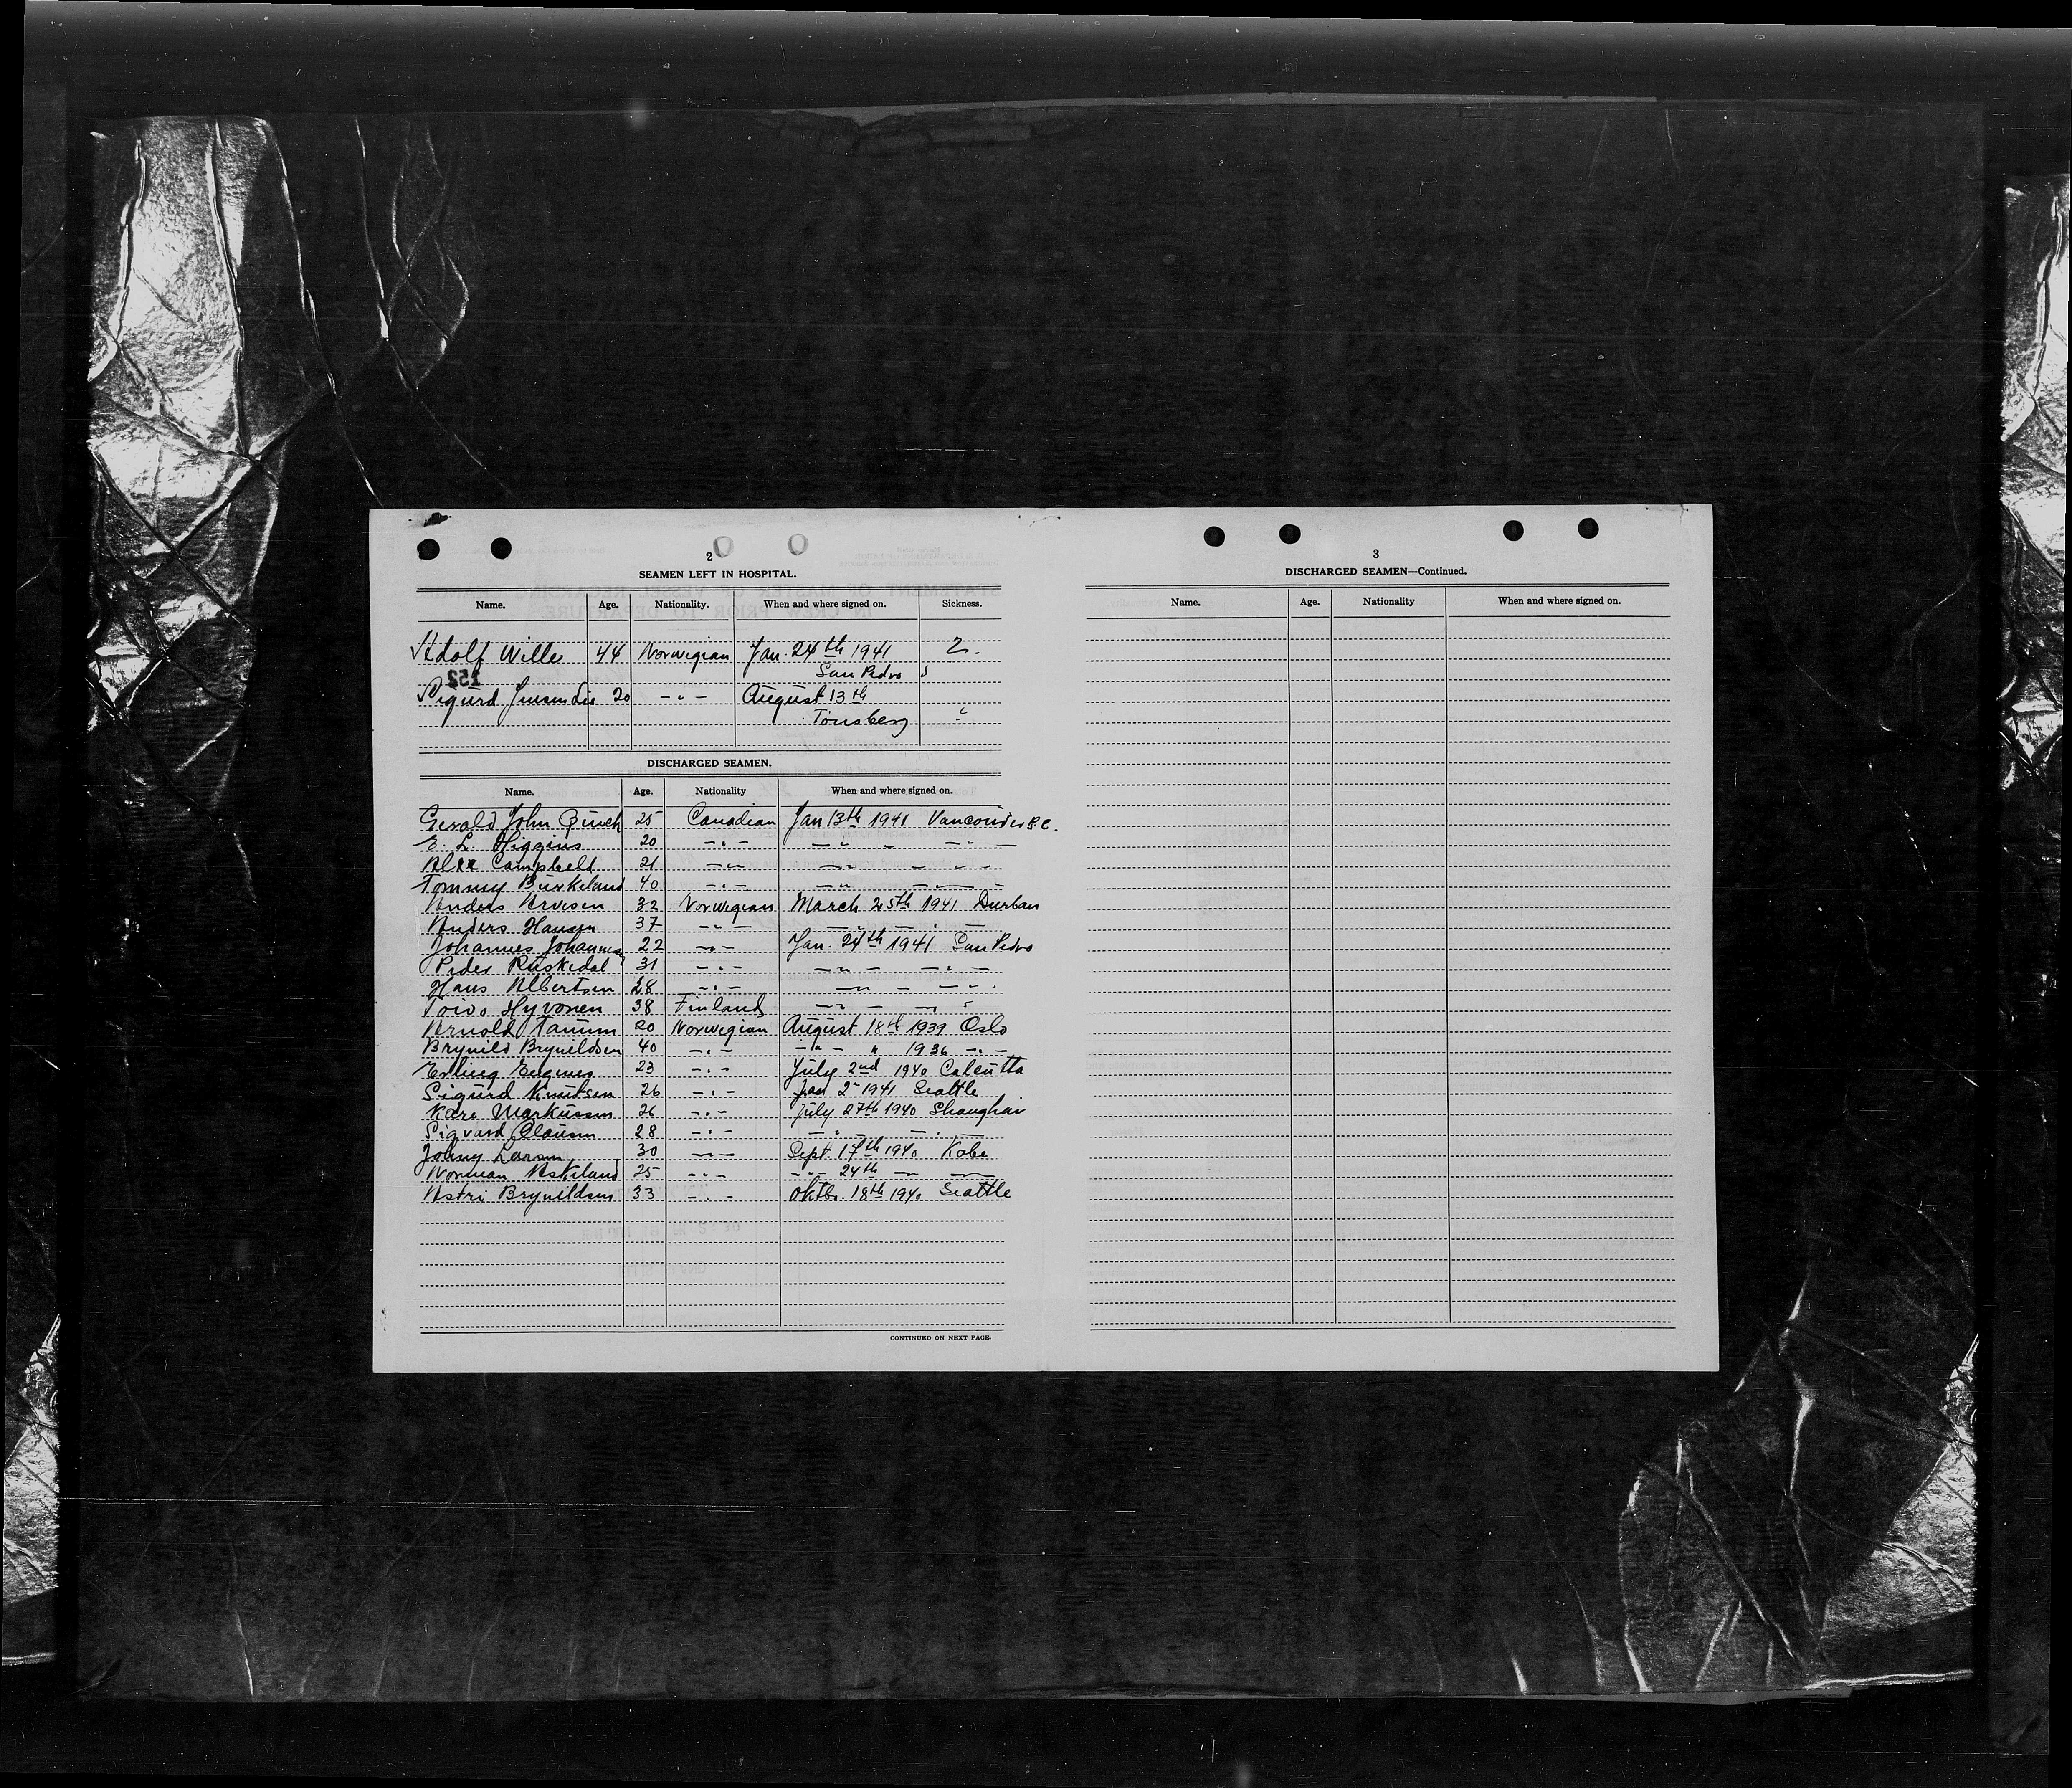 2
SEAMEN LEFT IN HOSPITAL.
Name. Age. Nationality. When and where signed on. Sickness.
Adolf Wille 44 Norwegian Jan. 24th 1941
San Pedro
Sigurd 20 - " - August 13th
Tönsberg
DISCHARGED SEAMEN.
Name. Age. Nationality When and where signed on.
Gerald John 25 Canadian Jan 13th 1941 Vancouver B.C.
E. L. Higgins 20 - " - - " - - " -
Alex Campbell 21 - " - - " - - " -
Tommy Burkeland 40 - " - - " - - " -
Anders Arvesen 32 Norwegian March 25th 1941 Durban
Anders Hansen 37 - " - - " - - " -
Johannes 22 - " - Jan. 24th 1941 San Pedro
Peder Ruskedal 31 - " - - " - - " -
Hans Albertsen 28 - " - - " - - " -
Toivo Hyvonen 38 Finland - " - - " -
Arnold Tanum 20 Norwegian August 18th 1939 Oslo
Brynild Brynildsen 40 - " - - " - " 1936 - " -
Erling 23 - " - July 2nd 1940 Calcutta
Sigurd Knutsen 26 - " - Jan 2nd 1941 Seattle
Kåre Markussen 26 - " - July 27th 1940 Shanghai
Sigvard Olausen 28 - " - - " - - " -
Johny Larsen 30 - " - Sept. 17th 1940 Kobe
Norman Askeland 25 - " - - " - 24th - " -
Astri Brynildsen 33 - " - Oktbr. 18th 1940 Seattle
CONTINUED ON NEXT PAGE.
3
DISCHARGED SEAMEN—Continued.
Name. Age. Nationality When and where signed on.